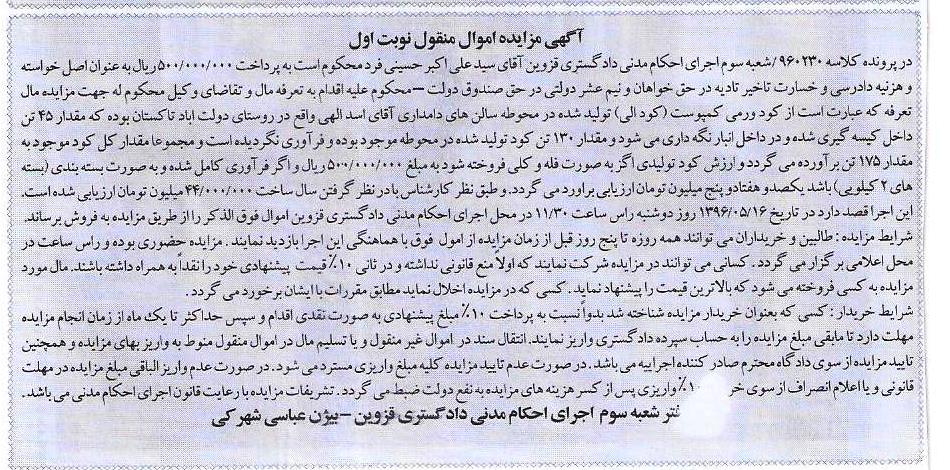 آگهی مزایده اموال منقول نوبت اول
در پرونده کلاسه ۹۶۰۲۳۰/ شعبه سوم اجرای احکام مدنی دادگستری قزوین آقای سید علی اکبر حسینی فرد محکوم است به پرداخت ۵۰۰/۰۰۰/۰۰۰ ریال به عنوان اصل خواسته
و هزینه دادرسی و خسارت تاخیر تادیه در حق خواهان و نیم عشر دولتی در حق صندوق دولت – محکوم علیه اقدام به تعرفه مال و تقاضای وکیل محکوم له جهت مزایده مال
تعرفه که عبارت است از کود ورمی کمپوست (کود آلی) تولید شده در محوطه سالن های دامداری آقای اسد الهی واقع در روستای دولت اباد تاکستان بوده که مقدار ۴۵ تن
داخل کیسه گیری شده و در داخل انبار نگه داری می شود و مقدار ۱۳۰ تن کود تولید شده در محوطه موجود بوده و فرآوری نگردیده است و مجموعا مقدار کل کود موجود به
مقدار ۱۷۵ تن برآورده می گردد و ارزش کود تولیدی اگر به صورت فله و کلی فروخته شود به مبلغ ۵۰۰/۰۰۰/۰۰۰ ریال و اگر فرآوری کامل شده و به صورت بسته بندی (بسته
های ۲ کیلویی) باشد یکصدو هفتادو پنج میلیون تومان ارزیابی براورد می گردد. و طبق نظر کارشناس با در نظر گرفتن سال ساخت ۴۴/۰۰۰/۰۰۰ میلیون تومان ارزیابی شده است
این اجرا قصد دارد در تاریخ ۱۳۹۶/۰۵/۱۶ روز دوشنبه راس ساعت ۱۱/۳۰ در محل اجرای احکام مدنی دادگستری قزوین اموال فوق الذکر را از طریق مزایده به فروش برساند.
شرایط مزایده : طالبین و خریداران می توانند همه روزه تا پنج روز قبل از زمان مزایده از امول فوق با هماهنگی این اجرا بازدید نمایند . مزایده حضوری بوده و راس ساعت در
محل اعلامی برگزار می گردد . کسانی می توانند در مزایده شرکت نمایند که اولاً منع قانونی نداشته و در ثانی ۱۰٪ قیمت پیشنهادی خود را نقداً به همراه داشته باشند. مال مورد
مزایده به کسی فروخته می شود که بالاترین قیمت را پیشنهاد نماید . کسی که در مزایده اخلال نماید مطابق مقررات با ایشان برخورد می گردد .
شرایط خریدار : کسی که بعنوان خریدار مزایده شناخته شد بدواً نسبت به پرداخت ۱۰٪ مبلغ پیشنهادی به صورت نقدی اقدام و سپس حداکثر تا یک ماه از زمان انجام مزایده
مهلت دارد تا مابقی مبلغ مزایده را به حساب سپرده دادگستری واریز نمایند. انتقال سند در اموال غیر منقول و یا تسلیم مال در اموال منقول منوط به واریز بهای مزایده و همچنین
تایید مزایده از سوی دادگاه محترم صادر کننده اجراییه می باشد . در صورت عدم تایید مزایده کلیه مبلغ واریزی مسترد می شود . در صورت عدم واریز الباقی مبلغ مزایده در مهلت
قانونی و یا اعلام انصراف از سوی خر ۱۰٪ واریزی پس از کسر هزینه های مزایده به نفع دولت ضبط می گردد . تشریفات مزایده با رعایت قانون اجرای احکام مدنی می باشد.
فتر شعبه سوم اجرای احکام مدنی دادگستری قزوین – بیژن عباسی شهرکی